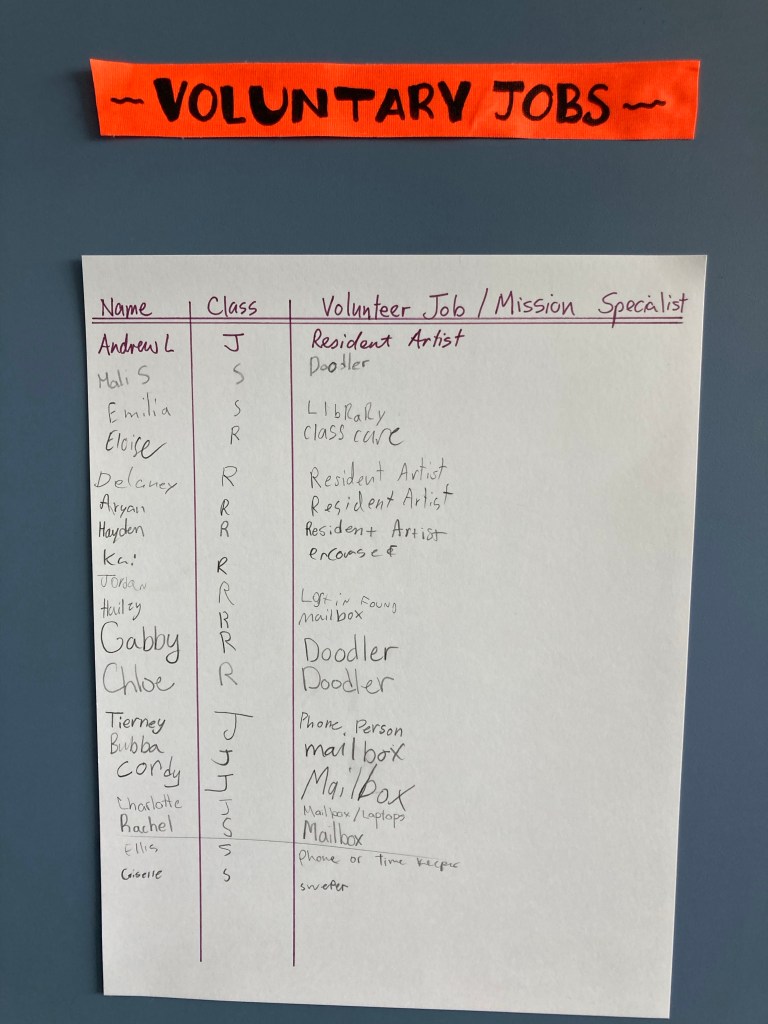 ~ VOLUNTARY JOBS ~
Name Class Volunteer Job / Mission Specialist
Andrew L J Resident Artist
Mali S S Doodler
Emilia S LIbRaRy
Eloise R class care
Delaney R Resident Artist
Aryan R Resident Artist
Hayden R Resident Artist
Kai R
Jordan R Lost in Found
Hailey R mailbox
Gabby R Doodler
Chloe R Doodler
Tierney J Phone Person
Bubba J mailbox
Cordy J Mailbox
Charlotte J Mailbox/Laptops
Rachel S Mailbox
Ellis S Phone or time keeper
Giselle S sweper